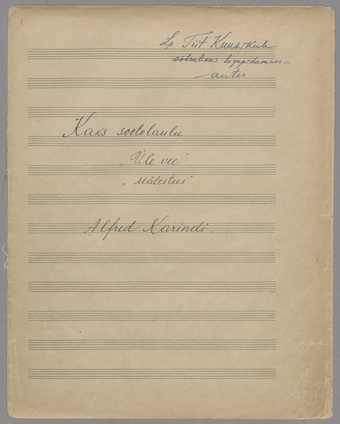 Lp. Tiit Kuusikule
sõbralikus lugupidamises
autor
Kaks soololaulu
„Üle vee"
„Mälestus"
Alfred Karindi.